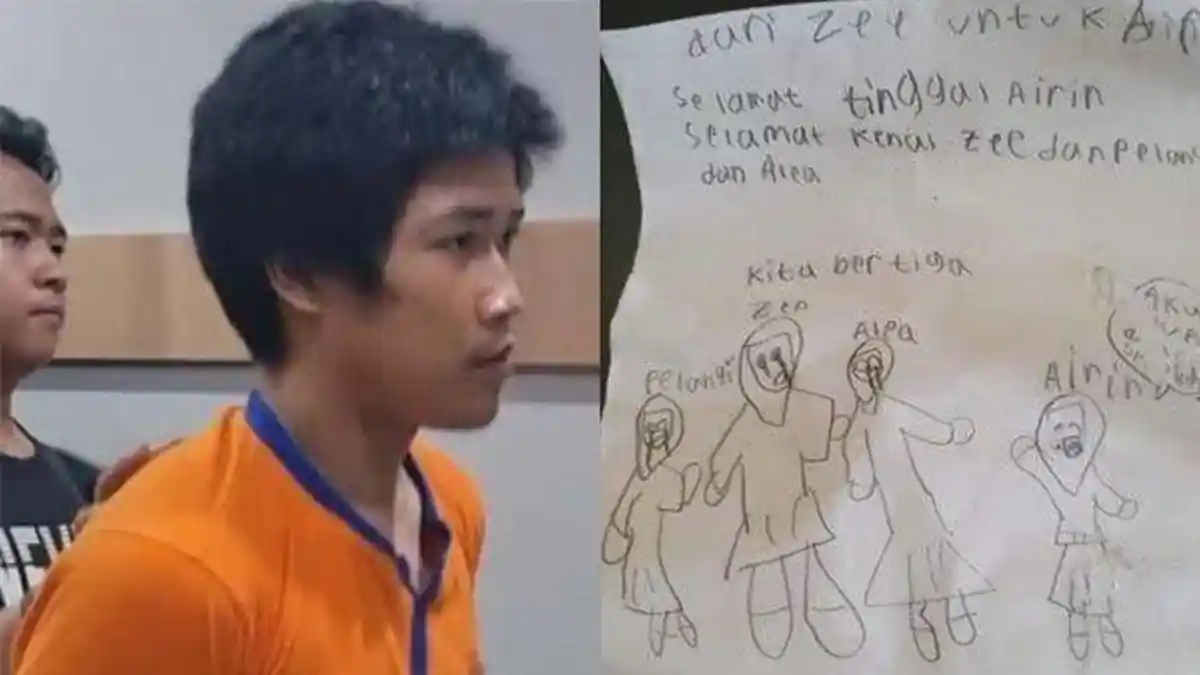 dari Zee untuk Airi
Selamat tinggal Airin
Selamat kenal Zee dan pelangi
dan Alea
kita bertiga
Zee
Alea
pelangi
Airin
Aku